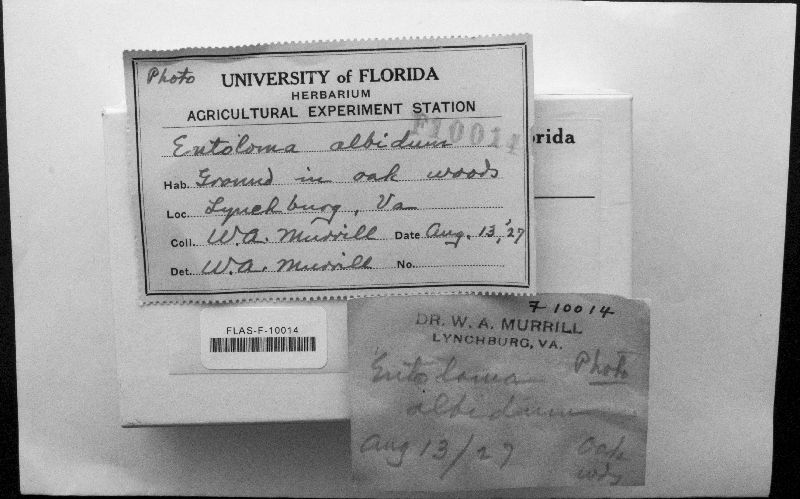 Photo
UNIVERSITY of FLORIDA
HERBARIUM
AGRICULTURAL EXPERIMENT STATION
F10014
Entoloma albidum
Hab. Ground in oak woods
Loc. Lynchburg, Va
Coll. W.A. Murrill Date Aug. 13, '27
Det. W.A. Murrill No.
rida
FLAS-F-10014
F 10014
DR. W. A. MURRILL
LYNCHBURG, VA.
Entoloma Photo
albidum
Aug 13/27 Oak
wds